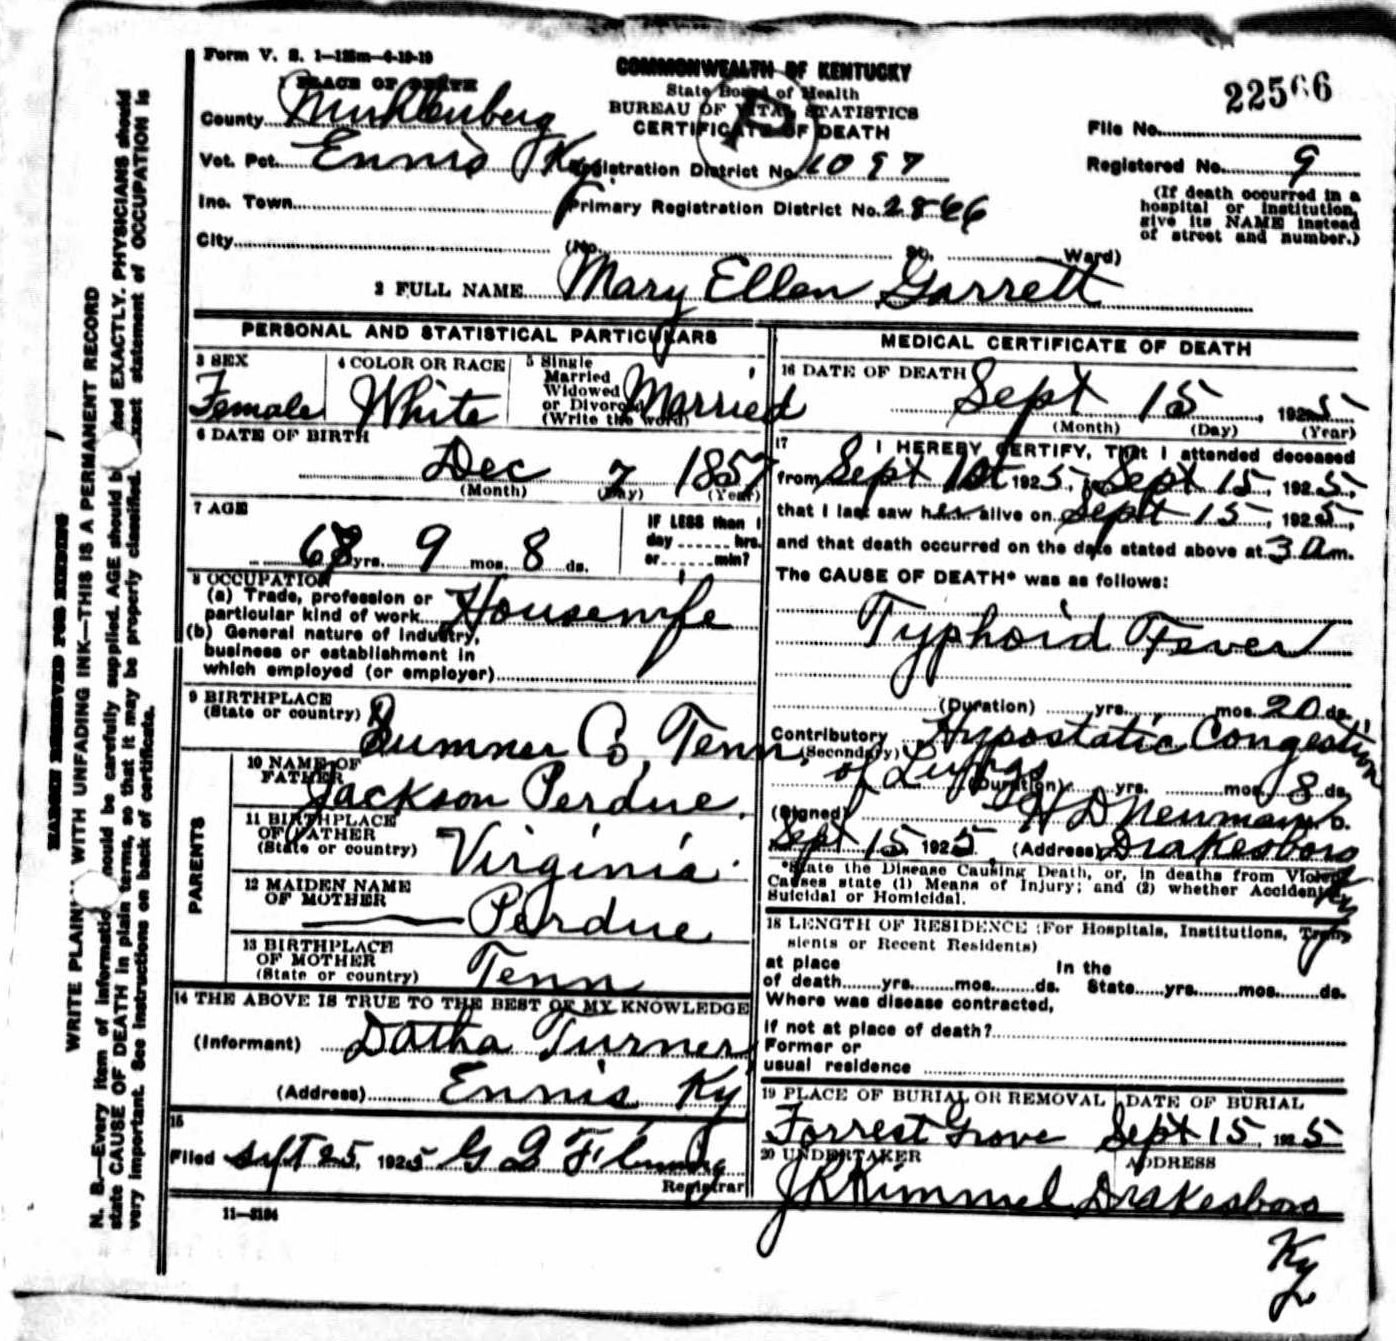 Form V. S. 1—125m—6-19-19
COMMONWEALTH OF KENTUCKY
State Board of Health
BUREAU OF VITAL STATISTICS
CERTIFICATE OF DEATH
22566
1 PLACE OF DEATH
County Muhlenberg
File No.
Vot. Pct. Ennis Ky. Registration District No. 1097
Registered No. 9
Inc. Town Primary Registration District No. 2866
(If death occurred in a
hospital or institution,
give its NAME instead
of street and number.)
City (No. St. Ward)
2 FULL NAME Mary Ellen Garrett
PERSONAL AND STATISTICAL PARTICULARS
3 SEX
Female
4 COLOR OR RACE
White
5 Single
Married
Widowed
or Divorced
(Write the word)
Married
6 DATE OF BIRTH
Dec 7 1857
(Month) (Day) (Year)
7 AGE
yrs. 9 mos. 8 ds.
IF LESS than 1
day hrs.
or min?
8 OCCUPATION
(a) Trade, profession or
particular kind of work Housewife
(b) General nature of industry,
business or establishment in
which employed (or employer)
9 BIRTHPLACE
(State or country)
Sumner Co, Tenn.
PARENTS
10 NAME OF
FATHER
Jackson Perdue.
11 BIRTHPLACE
OF FATHER
(State or country) Virginia.
12 MAIDEN NAME
OF MOTHER
Perdue
13 BIRTHPLACE
OF MOTHER
(State or country) Tenn
14 THE ABOVE IS TRUE TO THE BEST OF MY KNOWLEDGE
(Informant) Datha Turner
(Address) Ennis Ky
15
Filed Sept 25, 1925 G
Registrar
11—3184
MEDICAL CERTIFICATE OF DEATH
16 DATE OF DEATH
Sept 15, 1925
(Month) (Day) (Year)
17
I HEREBY CERTIFY, That I attended deceased
from Sept 1st 1925, to Sept 15, 1925,
that I last saw her alive on Sept 15, 1925,
and that death occurred on the date stated above at 3 a m.
The CAUSE OF DEATH* was as follows:
Typhoid Fever
(Duration) yrs. mos. 20 ds.
Contributory Hypostatic Congestion
(Secondary) of Lungs
(Duration) yrs. mos. 8 ds.
(Signed) H D Newman M. D.
Sept 15 1925, (Address) Drakesboro
Ky
*State the Disease Causing Death, or, in deaths from Violent
Causes state (1) Means of Injury; and (2) whether Accidental,
Suicidal or Homicidal.
18 LENGTH OF RESIDENCE (For Hospitals, Institutions, Tran-
sients or Recent Residents)
at place In the
of death yrs. mos. ds. State yrs. mos. ds.
Where was disease contracted,
if not at place of death?
Former or
usual residence
19 PLACE OF BURIAL OR REMOVAL DATE OF BURIAL
Forrest Grove Sept 15, 1925
20 UNDERTAKER ADDRESS
J R Kimmel Drakesboro
Ky
MARGIN RESERVED FOR BINDING
WRITE PLAINLY WITH UNFADING INK—THIS IS A PERMANENT RECORD
N. B.—Every item of information should be carefully supplied. AGE should be stated EXACTLY. PHYSICIANS should
state CAUSE OF DEATH in plain terms, so that it may be properly classified. Exact statement of OCCUPATION is
very important. See instructions on back of certificate.